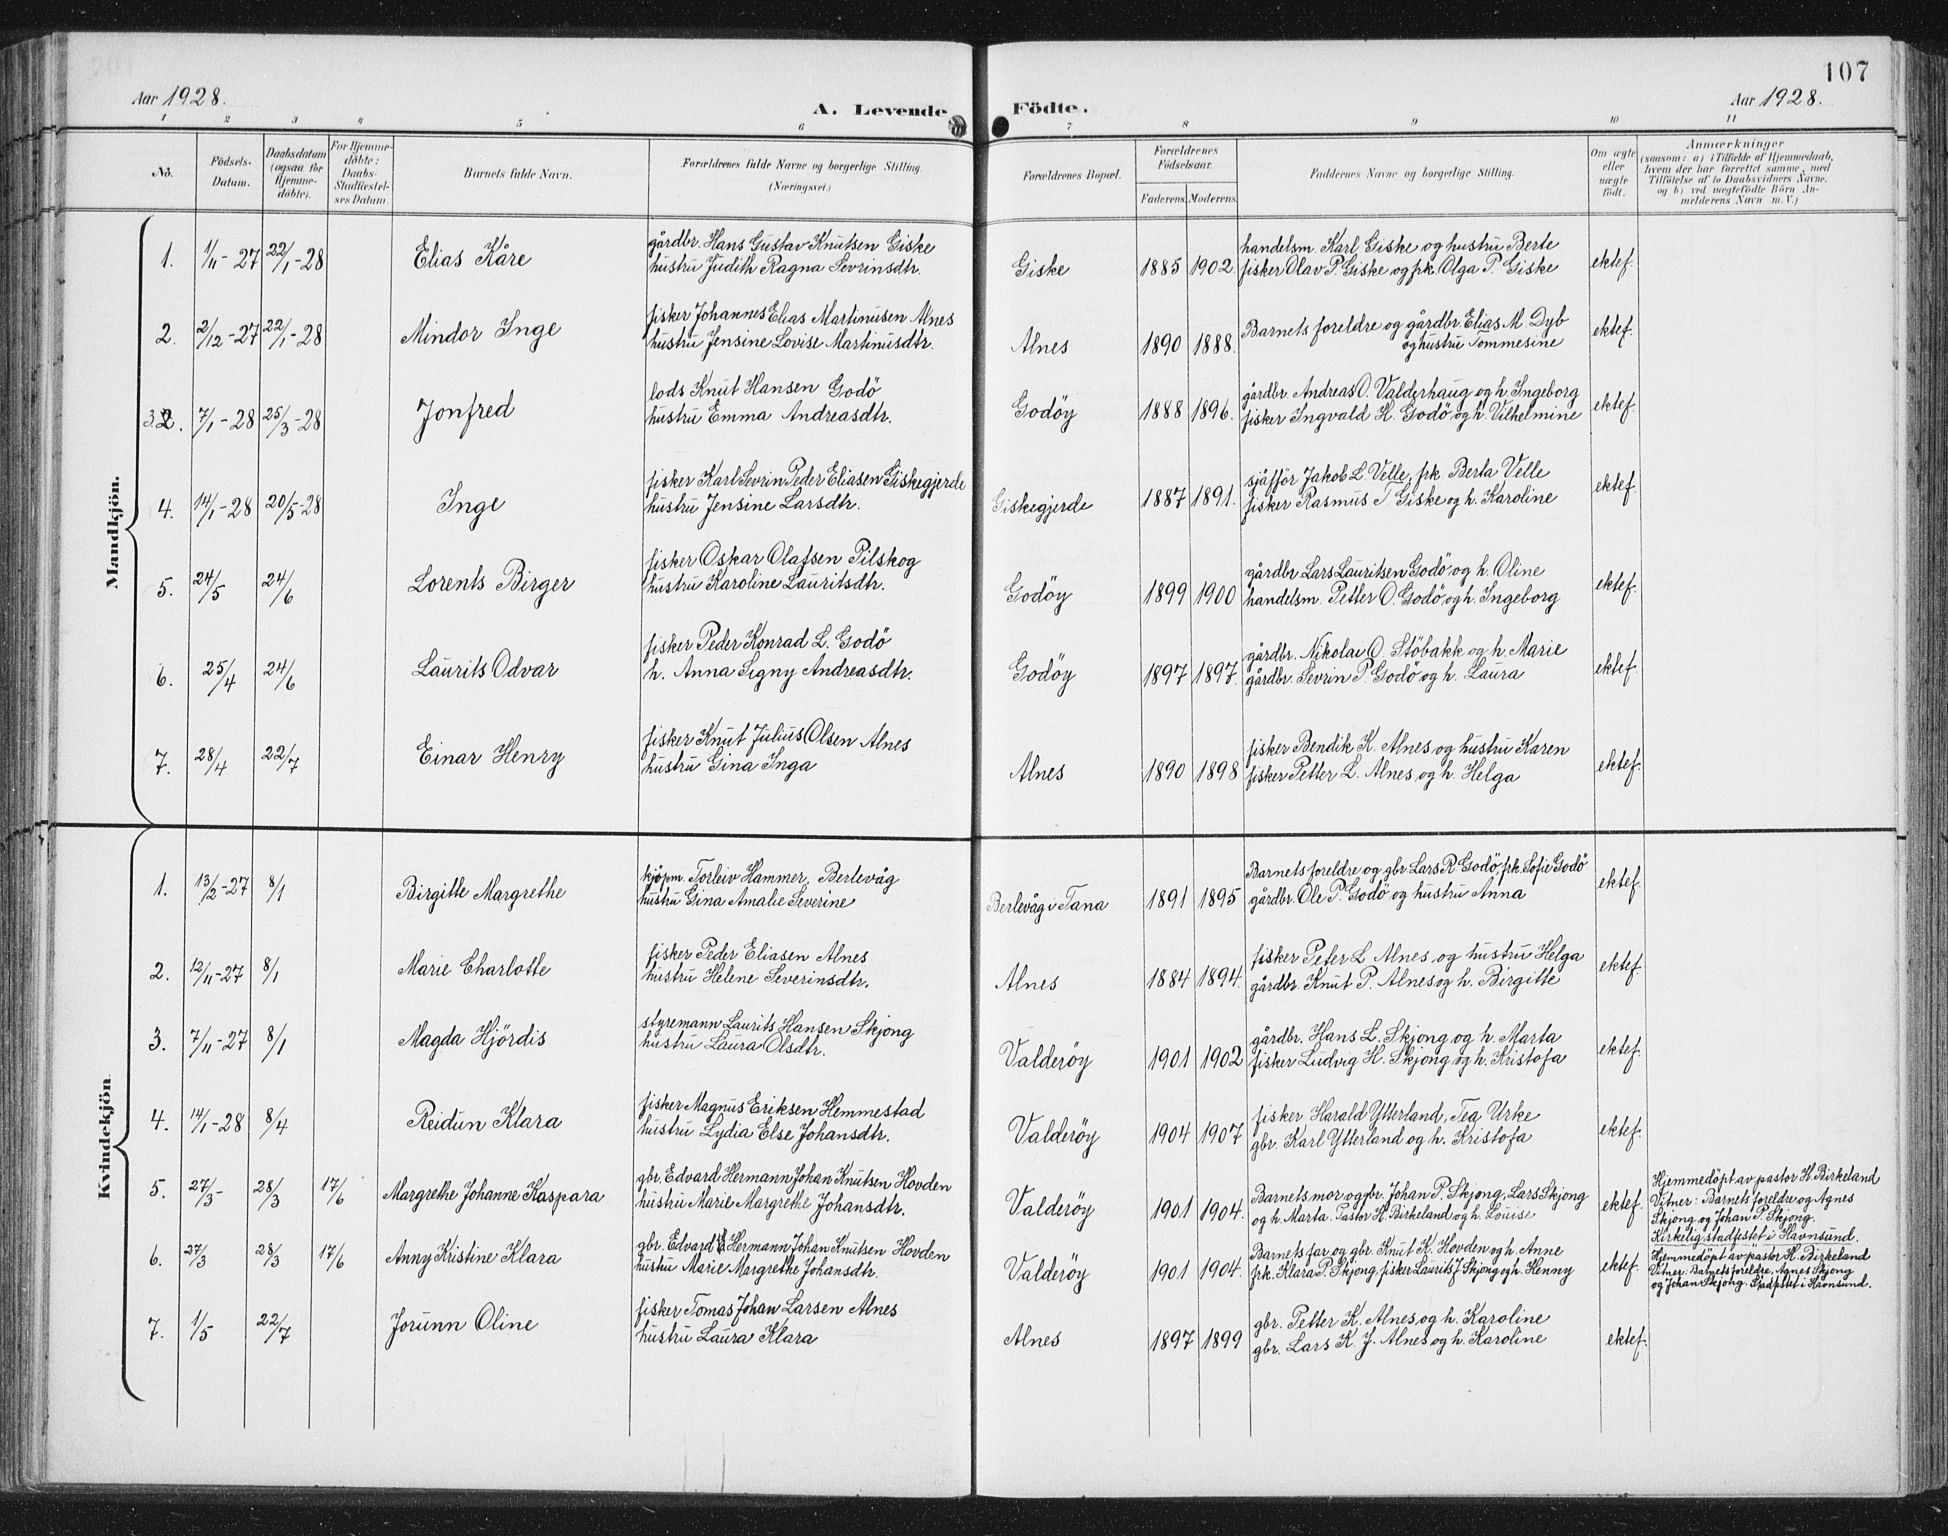 107
Aar 1928.
A. Levende Födte.
Aar 1928.
1 2 3 4 5 6 7 8 9 10 11
No.
Födsels-
Datum.
Daabsdatum
(ogsaa for
Hjemme-
döbte).
For Hjemme-
döbte:
Daabs-
Stadfæstel-
ses Datum.
Barnets fulde Navn.
Forældrenes fulde Navne og borgerlige Stilling.
(Næringsvei.)
Forældrenes Bopæl.
Forældrenes
Födselsaar.
Faderens. Moderens.
Faddernes Navne og borgerlige Stilling.
Om ægte
eller
uægte
födt.
Anmærkninger
(saasom: a) i Tilfælde af Hjemmedaab,
hvem der har forrettet samme, med
Tilföielse af to Daabsvidners Navne.
og b) ved uægtefödte Börn An-
melderens Navn m. V.)
Mandkjön.
1. 1/11-27 22/1-28 Elias Kåre
gårdbr. Hans Gustav Knutsen Giske
hustru Judith Ragna Sevrinsdtr.
Giske 1885 1902.
handelsm. Karl Giske og hustru Berte
fisker Olav P. Giske og frk. Olga P. Giske
ektef.
2. 2/12-27 22/1-28 Mindor Inge
fisker Johannes Elias Martinusen Alnes
hustru Jensine Lovise Martinusdtr.
Alnes 1890 1888.
Barnets foreldre og gårdbr. Elias M. Dyb
og hustru Tommesine
ektef.
3. 7/1-28 25/3-28 Jonfred
lods Knut Hansen Godö
hustru Emma Andreasdtr.
Godöy 1888 1896.
gårdbr. Andreas O. Valderhaug og h. Ingeborg
fisker Ingvald H. Godö og h. Vilhelmine
ektef.
4. 14/1-28 20/5-28 Inge
fisker Karl Sevrin Peder Eliasen Giskegjerde
hustru Jensine Larsdtr.
Giskegjerde 1887 1891.
sjåfför Jakob L. Velle, frk. Berta Velle
fisker Rasmus T. Giske og h. Karoline
ektef.
5. 24/5 24/6 Lorents Birger
fisker Oskar Olafsen Pilskog
hustru Karoline Lauritsdtr.
Godöy 1899 1900
gårdbr. Lars Lauritsen Godö og h. Oline
handelsm. Petter O. Godö og h. Ingeborg
ektef.
6. 25/4 24/6 Laurits Odvar
fisker Peder Konrad L. Godö
h. Anna Signy Andreasdtr.
Godöy 1897 1897.
gårdbr. Nikolai O. Stöbakk og h. Marie
gårdbr. Sevrin P. Godö og h. Laura
ektef.
7. 28/4 22/7 Einar Henry
fisker Knut Julius Olsen Alnes
hustru Gina Inga
Alnes 1890 1898
fisker Bendik K. Alnes og hustru Karen
fisker Petter L. Alnes og h. Helga
ektef.
Kvindekjön.
1. 13/2-27 8/1 Birgitte Margrethe
kjöpm. Torleiv Hammer, Berlevåg
hustru Gina Amalie Severine
Berlevåg i Tana 1891 1895
Barnets foreldre og gbr. Lars R. Godö, frk. Sofie Godö
gårdbr. Ole P. Godö og hustru Anna
ektef.
2. 12/11-27 8/1 Marie Charlotte
fisker Peder Eliasen Alnes
hustru Helene Severinsdtr.
Alnes 1884 1894.
fisker Peter L. Alnes og hustru Helga
gårdbr. Knut P. Alnes og h. Birgitte
ektef.
3. 7/11-27 8/1 Magda Hjördis
styremann Laurits Hansen Skjong
hustru Laura Olsdtr.
Valderöy 1901 1902
gårdbr. Hans L. Skjong og h. Marta
fisker Ludvig H. Skjong og h. Kristofa
ektef.
4. 14/1-28 8/4 Reidun Klara
fisker Magnus Eriksen Hemmestad
hustru Lydia Else Johansdtr.
Valderöy 1904 1907
fisker Harald Ytterland, Tea Urke
gbr. Karl Ytterland og h. Kristofa
ektef.
5. 27/3- 28/3 17/6 Margrethe Johanne Kaspara
gbr. Edvard Hermann Johan Knutsen Hovden
hustru Marie Margrethe Johansdtr.
Valderöy 1901 1904.
Barnets mor og gbr. Johan P. Skjong, Lars Skjong
og h. Marta. Pastor H. Birkeland og h. Louise
ektef.
Hjemmedöpt av pastor H. Birkeland
Vitner: Barnets foreldre og Agnes
Skjong og Johan P. Skjong.
Kirkelig stadfestet i Havnsund.
6. 27/3 28/3 17/6 Anny Kristine Klara
gbr. Edvard Hermann Johan Knutsen Hovden
hustru Marie Margrethe Johansdtr.
Valderöy 1901 1904.
Barnets far og gbr. Knut K. Hovden og h. Anne
frk. Klara P. Skjong, fisker Laurits J. Skjong og h. Henny
ektef.
Hjemmedöpt av pastor H. Birkeland
Vitner: Barnets foreldre, Agnes Skjong
og Johan Skjong. Stadfestet i Havnsund.
7. 1/5 22/7 Jorunn Oline
fisker Tomas Johan Larsen Alnes
hustru Laura Klara
Alnes 1897 1899
gbr. Petter K. Alnes og h. Karoline
gbr. Lars K. J. Alnes og h. Karoline
ektef.